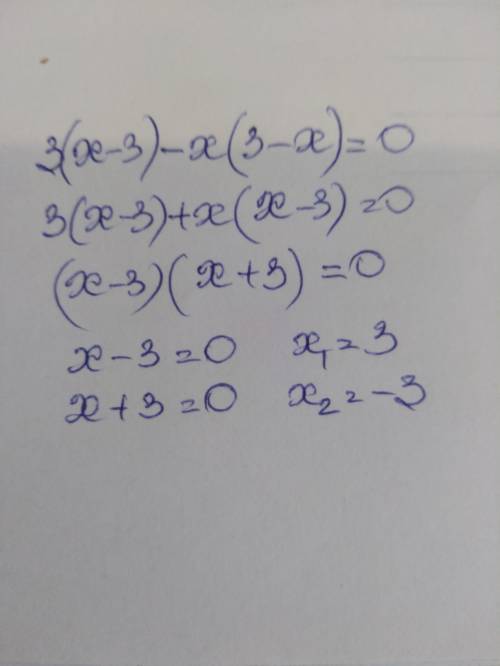 3(x-3)-x(3-x)=0
3(x-3)+x(x-3)=0
(x-3)(x+3)=0
x-3=0 x₁=3
x+3=0 x₂=-3